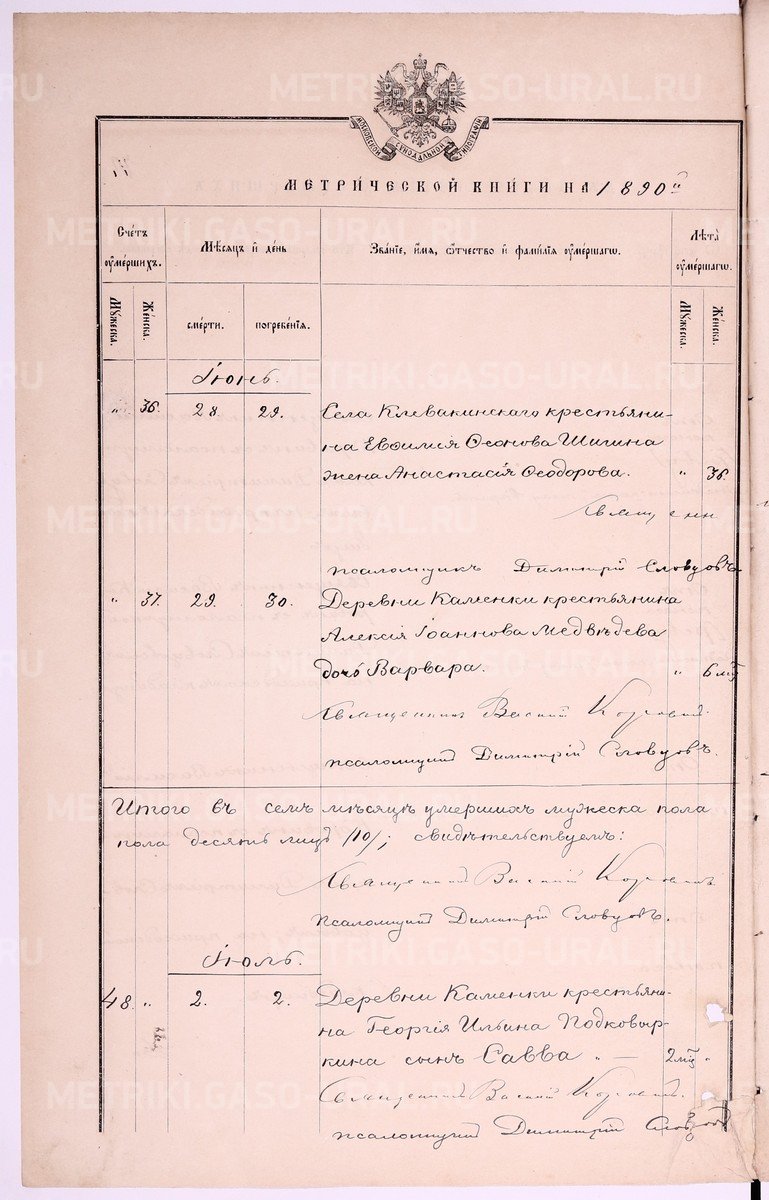 МОСКОВСКОЙ СѴНОДАЛЬНОЙ ТИПОГРАФІИ
МЕТРИ́ЧЕСКОЙ КНИ́ГИ НА 1890 й
Сче́тъ ᲂу҆ме́ршихъ.
Мѣ́сяцъ и҆ де́нь
Зва́нїе, и҆́мѧ, ѻ҆́тчество и҆ фами́лїѧ ᲂу҆ме́ршагѡ.
Лѣ́та ᲂу҆ме́ршагѡ.
Мꙋ́жеска.
Же́нска.
сме́рти.
погребе́нїѧ.
Мꙋ́жеска.
Же́нска.
Іюнь.
" 36. 28. 29. Села Клевакинскаго крестьяни-
на Евѳимія Ѳеонова Шигина
жена Анастасія Ѳеодорова. " 36.
Священн
псаломщикъ Димитрій Словцовъ
" 37. 29. 30. Деревни Каменки крестьянина
Алексія Іоаннова Медвѣдева
дочь Варвара. " 6 мц
Священникъ Василій
псаломщикъ Димитрій Словцовъ.
Итого въ семъ мѣсяцѣ умершихъ мужеска пола
пола десять лицъ /10/; свидѣтельствуемъ:
Священникъ Василій
псаломщикъ Димитрій Словцовъ.
Іюль.
48. " 2. 2. Деревни Каменки крестьяни-
на Георгія Ильина Подковыр-
кина сынъ Савва " — 2 мц "
Священникъ Василій
псаломщикъ Димитрій Словцовъ
METRIKI.GASO-URAL.RU